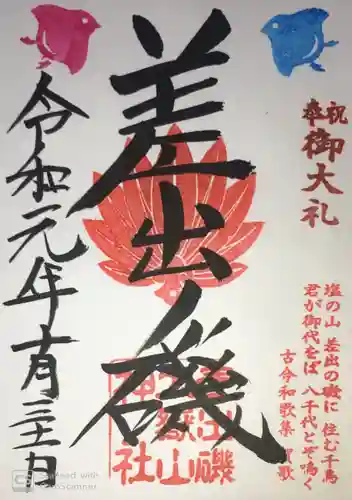 奉祝
御大礼
塩の山 差出の磯に 住む千鳥
君が御代をば 八千代とぞ鳴く
古今和歌集 賀歌
差出ノ磯
差出磯
大嶽山
神社
令和元年十月三十一日
Scanned with
CamScanner